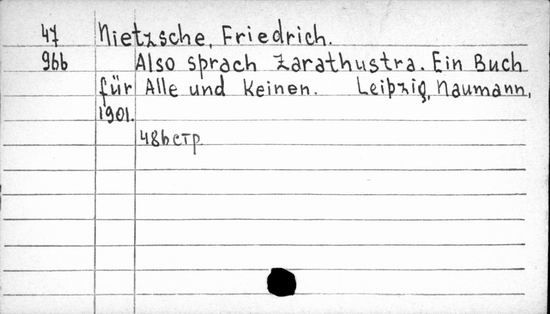 47 Nietzsche, Friedrich.
966 Also sprach Zarathustra. Ein Buch
für Alle und Keinen. Leipzig, Naumann,
1901.
486 стр.